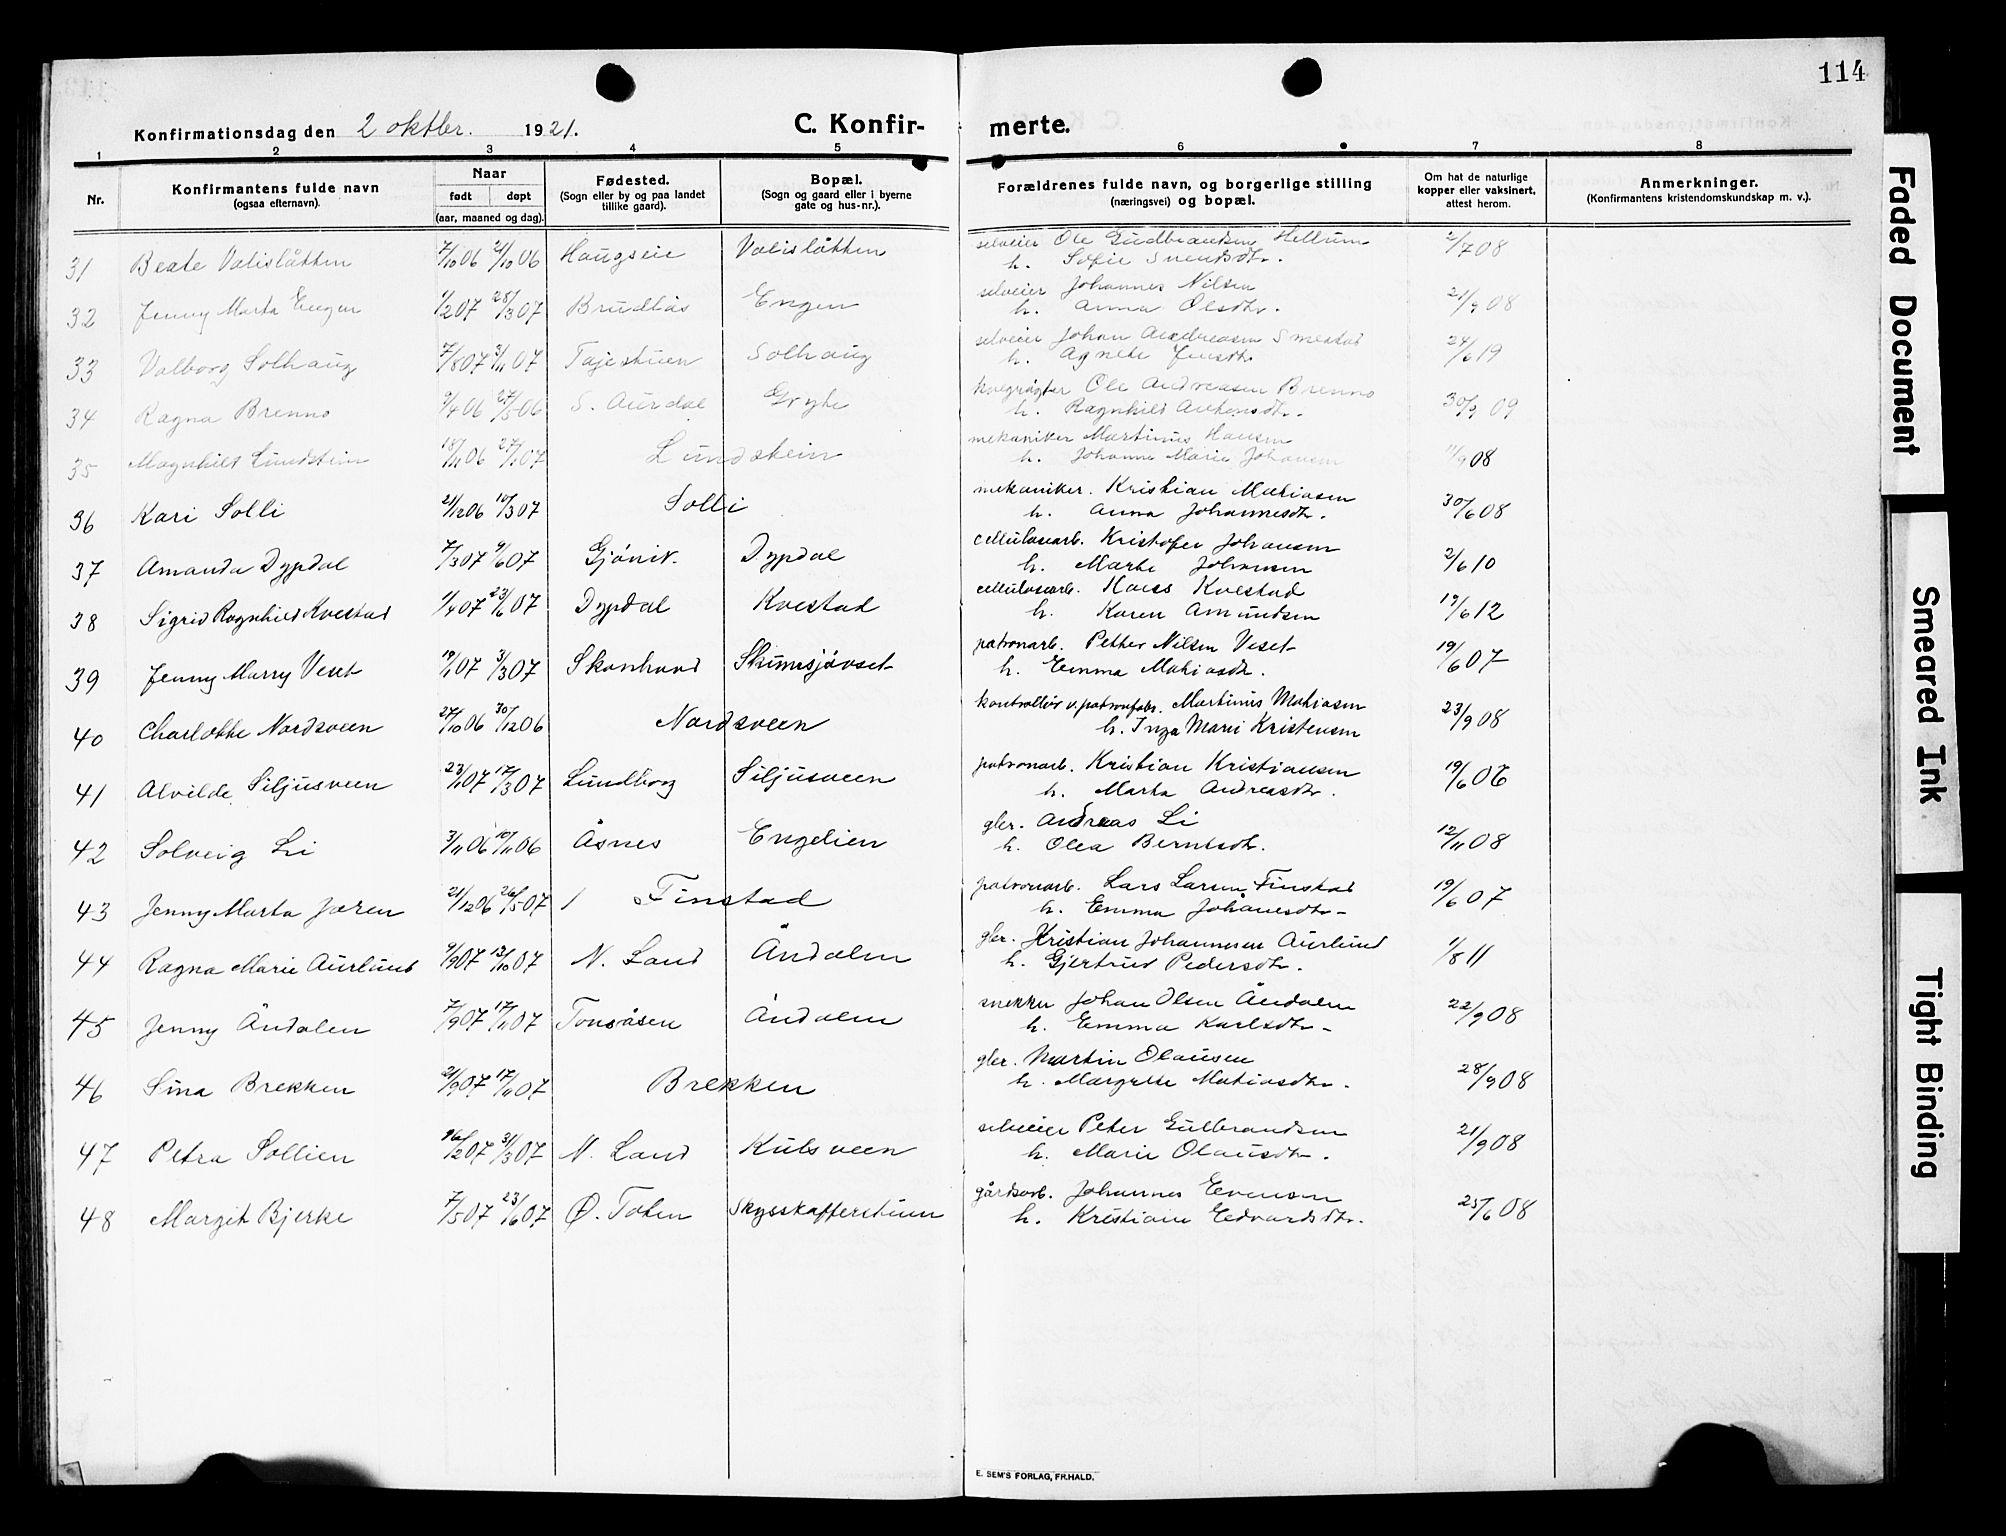 114
Konfirmationsdag den 2 oktbr. 1921.
C. Konfirmerte.
1 2 3 4 5 6 7 8
Nr.
Konfirmantens fulde navn
(ogsaa efternavn).
Naar
født døpt
(aar, maaned og dag).
Fødested.
(Sogn eller by og paa landet
tillike gaard).
Bopæl.
(Sogn og gaard eller i byerne
gate og hus-nr.).
Forældrenes fulde navn, og borgerlige stilling
(næringsvei) og bopæl.
Om hat de naturlige
kopper eller vaksinert,
attest herom.
Anmerkninger.
(Konfirmantens kristendomskundskap m. v.).
31 Beate Valislåtten 7/10 06 21/10 06 Haugseie Valislåtten selveier Ole Gudbrandsen Hellum 2/7 08
h. Sofie Svendsdtr.
32 Jenny Marta Engen 1/2 07 28/3 07 Brudlås Engen selveier Johannes Nilsen 21/9 08
h. Anna Olsdtr.
33 Valborg Solhaug 7/8 07 3/11 07 Tajestuen Solhaug selveier Johan Andreasen Smestad 24/6 19
h. Agnete Jensdtr.
34 Ragna Brenno 9/4 06 27/5 06 S. Aurdal Gryte Ole Andreasen Brenno 30/9 09
h. Ragnhild Antonsdtr.
35 Magnhild Lundstein 18/11 06 27/1 07 Lundstein mekaniker Martinus Hansen 11/9 08
h. Johanne Marie Johansen
36 Kari Solli 21/12 06 10/3 07 Solli mekaniker. Kristian Matiasen 30/6 08
h. Anna Johannesdtr.
37 Amanda Dypdal 7/3 07 9/6 07 Gjövik. Dypdal cellulosearb. Kristofer Johansen 2/6 10
h. Marte Johansen
38 Sigrid Ragnhild Kvestad 1/4 07 23/6 07 Dypdal Kvestad cellulosearb. Hans Kvestad 19/6 12
h. Karen Amundsen
39 Jenny Marry Veset 19/1 07 3/3 07 Skonhovd Skumsjövset patronarb. Petter Nilsen Veset 19/6 07
h. Emma Matiasdtr.
40 Charlotte Nordsveen 27/10 06 30/12 06 Nordsveen kontrollör v. patronfabr. Martinus Matiasen 23/9 08
h. Inga Marie Kristensen
41 Alvilde Siljusveen 23/1 07 17/3 07 Lundborg Siljusveen patronarb. Kristian Kristiansen 19/6 06
h. Marta Andreasdtr.
42 Solveig Li 3/11 06 10/11 06 Åsnes Engelien gbr. Andreas Li 12/11 08
h. Olea Berntsdtr.
43 Jenny Marta Jaren 21/12 06 26/5 07 Finstad patronarb. Lars Larsen Finstad 19/6 07
h. Emma Johanesdtr.
44 Ragna Marie Aurlund 9/9 07 13/10 07 N. Land Åndalen gbr. Kristian Johannesen Aurlund 1/8 11
h. Gjertrud Pedersdtr.
45 Jenny Åndalen 7/9 07 17/11 07 Tonsåsen Åndalen snekker Johan Olsen Åndalen 22/9 08
h. Emma Karlsdtr.
46 Sina Brekken 21/9 07 17/11 07 Brekken gbr. Martin Olausen 28/9 08
h. Margrette Matiasdtr.
47 Petra Sollien 16/2 07 31/3 07 N. Land Kulsveen selveier Peter Gulbrandsen 21/9 08
h. Marie Olausdtr.
48 Margit Bjerke 7/5 07 23/6 07 Ø. Toten Skysskafferstuen gårdsarb. Johannes Evensen 25/6 08
h. Kristiane Edvardsdtr.
E. SEM'S FORLAG, FR.HALD.
Faded Document
Smeared Ink
Tight Binding